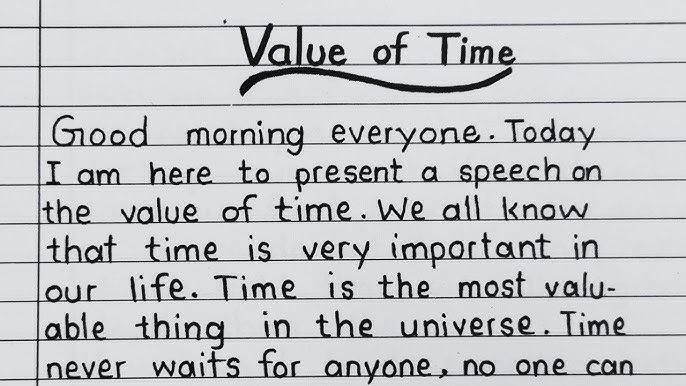 Value of Time
Good morning everyone. Today
I am here to present a speech on
the value of time. We all know
that time is very important in
our life. Time is the most valu-
able thing in the universe. Time
never waits for anyone, no one can